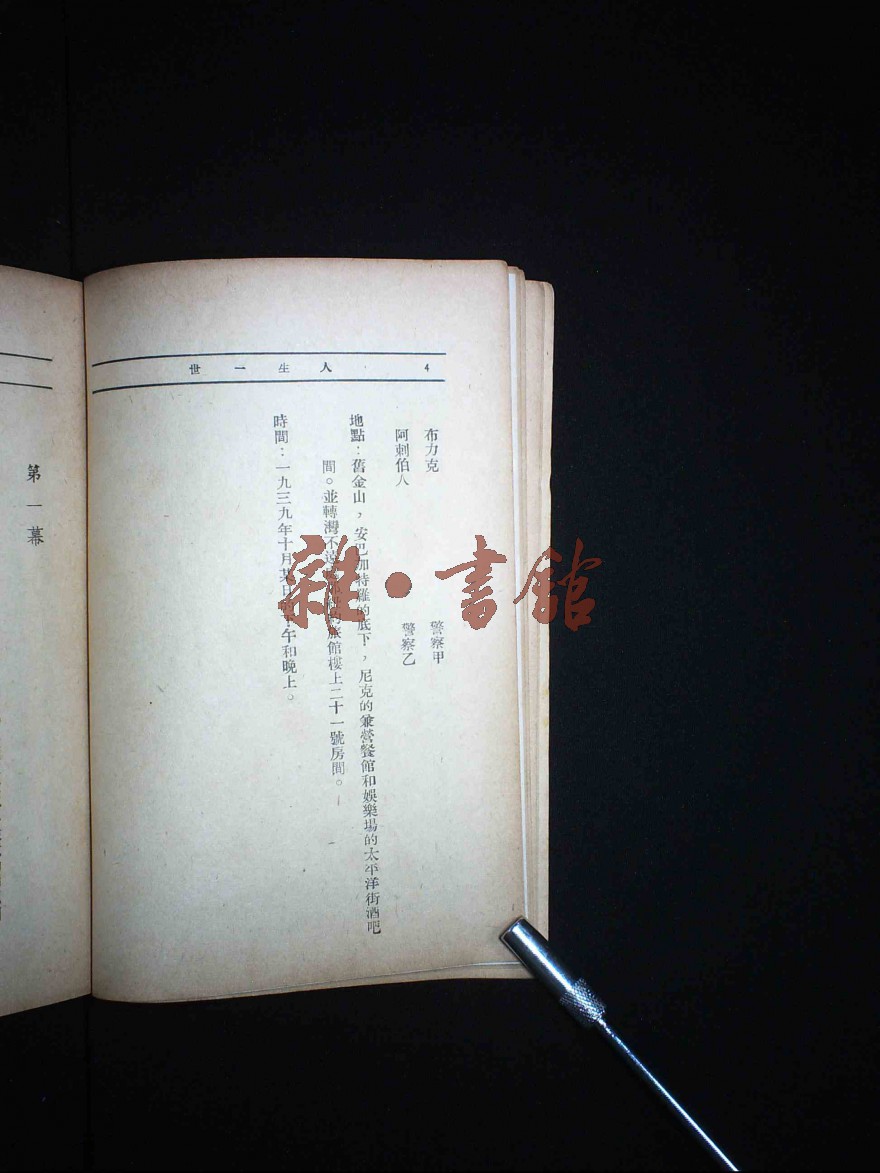 人生一世 4
布力克 警察甲
阿刺伯人 警察乙
地點：舊金山，安巴加特羅的底下，尼克的兼營餐館和娛樂場的太平洋街酒吧
間。並轉灣不遠 旅館樓上二十一號房間。
時間：一九三九年十月某日的下午和晚上。
第一幕
雜·書館